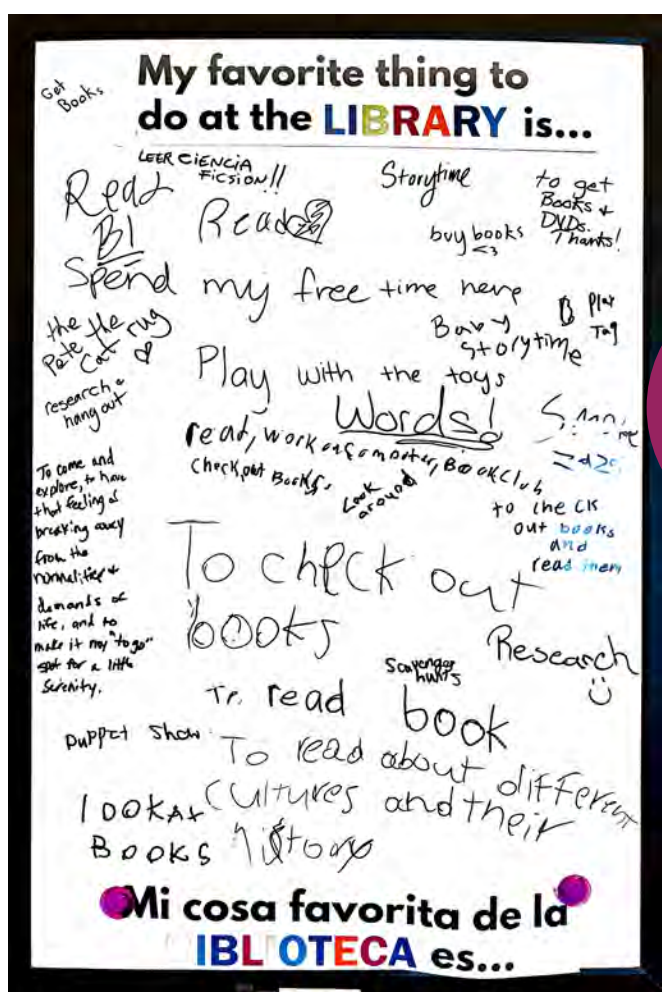 My favorite thing to
do at the LIBRARY is...
Get
Books
LEER CIENCIA
FICSION!!
Storytime
to get
Books &
DVDs.
Thanks!
Read
B1
Read
buy books
<3
Spend my free time here
the
Pete the
Cat rug
Storytime
Play
Tag
Play with the toys
research &
hang out
Words!
read, work on computer, Book Club
Check out Books
Look
around
to check
out books
and
read them
To come and
explore, to have
that feeling of
breaking away
from the
normalities &
demands of
life, and to
make it my "to go"
spot for a little
serenity.
To check out
books
Research
Scavenger
hunts
read
book
puppet show
To read about different
cultures and their
history
look At
Books
Mi cosa favorita de la
IBL OTECA es...